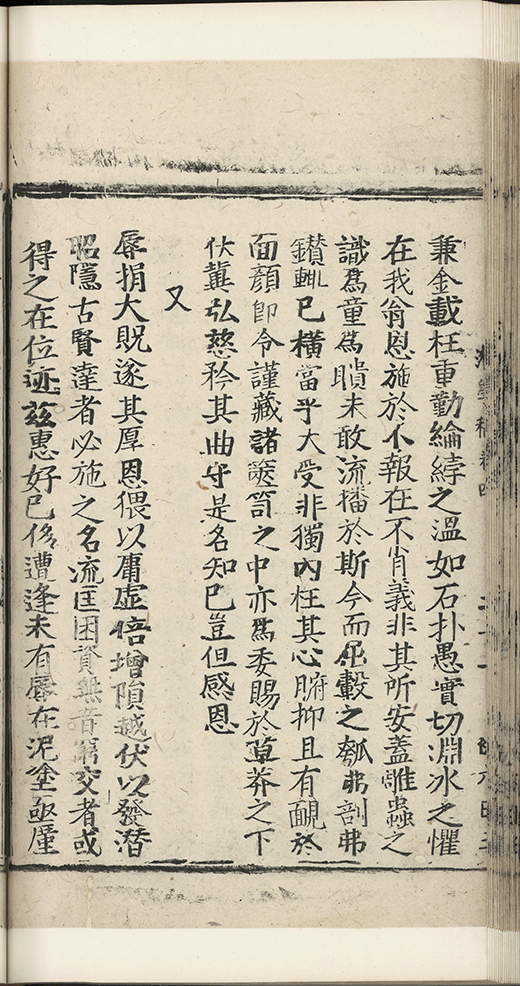 兼金載枉重勤綸綍之溫如石扑愚實切淵冰之懼
在我翁恩施於不報在不肖義非其所安蓋雕蟲之
識為童為瞶未敢流播於斯今而屈轂之瓠弗剖弗
鑚輒已橫當乎大受非獨內枉其心腑抑且有靦於
面顏即令謹藏諸篋笥之中亦為委賜於草莽之下
伏冀弘慈矜其曲守是名知已豈但感恩
又
辱捐大貺遂其厚恩猥以庸虛倍增隕越伏以發潛
昭隱古賢達者必施之名流匡困資無者窮交者或
得之在位迹茲惠好已侈遭逢未有辱在泥塗亟厪